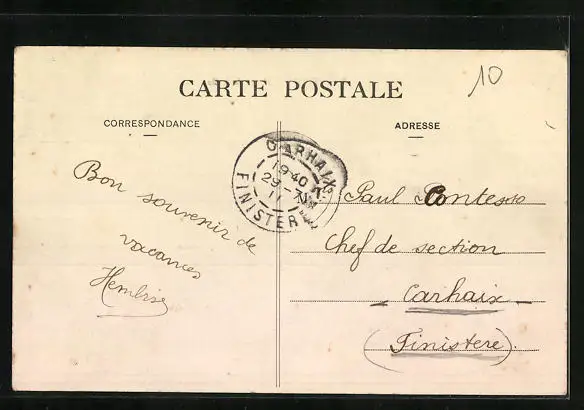 10
CARTE POSTALE
CORRESPONDANCE
ADRESSE
Bon souvenir de
vacances
CARHAIX
19 40
29 - 7
11
FINISTERE
Paul
Chef de section
Carhaix
(Finistere)